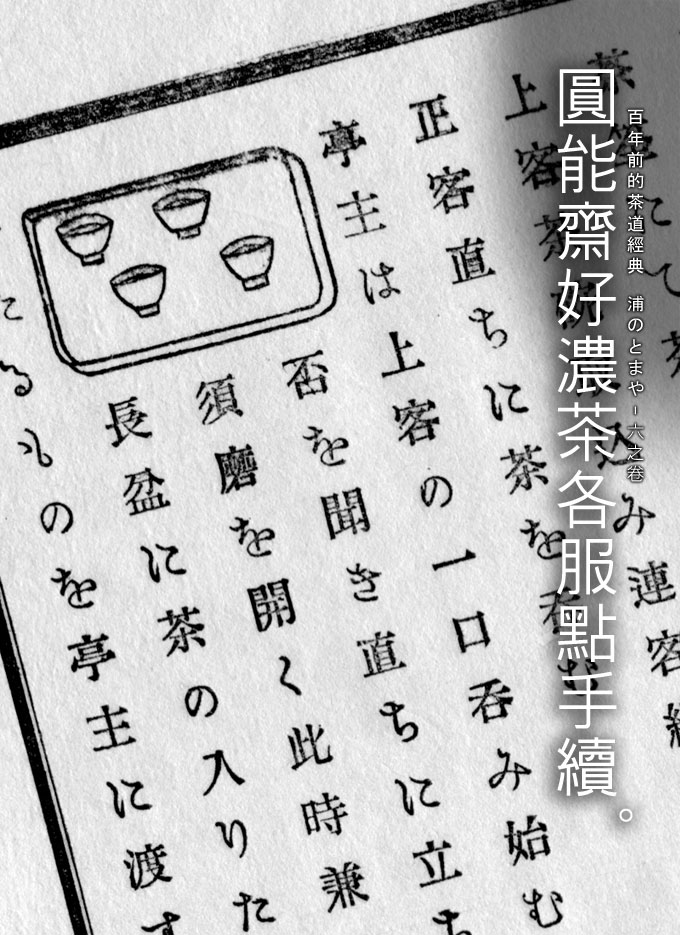 百年前的茶道經典 浦のとまや-六之卷
圓能齋好濃茶各服點手續。
上客茶 込み連客
正客直ちに茶を呑む
亭主は上客の一口呑み始む
否を聞き直ちに立ち
須磨を開く此時兼
長盆に茶の入りた
るものを亭主に渡す